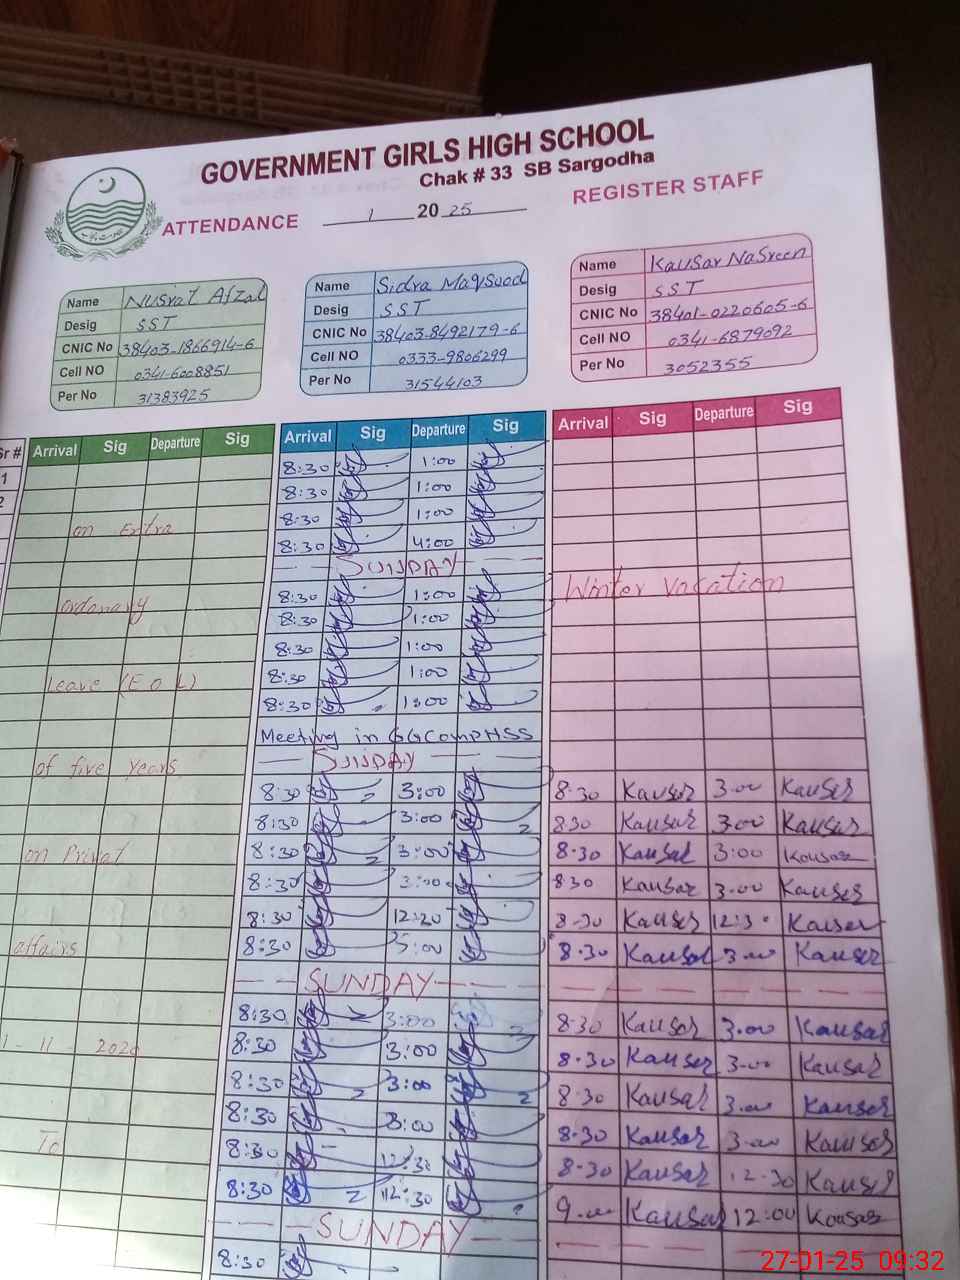 GOVERNMENT GIRLS HIGH SCHOOL
Chak # 33 SB Sargodha
ATTENDANCE 1 2025 REGISTER STAFF
Name Nusrat Afzal
Desig SST
CNIC No 38403-1866914-6
Cell NO 0341-6008851
Per No 31383925
Name Sidra Maqsood
Desig SST
CNIC No 38403-8492179-6
Cell NO 0333-9806299
Per No 31544103
Name Kausar Nasreen
Desig SST
CNIC No 38401-0220605-6
Cell NO 0341-6879092
Per No 3052355
Sr # Arrival Sig Departure Sig Arrival Sig Departure Sig Arrival Sig Departure Sig
1 8:30 1:00
2 8:30 1:00
8:30 1:00
on Extra
8:30 4:00
SUNDAY
8:30 1:00 Winter Vacation
ordonary 8:30 1:00
8:30 1:00
8:30 1:00
Leave (E O L) 8:30 1:00
Meeting in GGCompHSS
SUNDAY
of five years
8:30 3:00 8:30 Kausar 3.00 Kausar
8:30 3:00 830 Kausar 3.00 Kausar
on Privat 8:30 3:00 8.30 Kausar 3:00 Kausar
8:30 3:00 830 Kausar 3.00 Kausar
8:30 12:20 8.30 Kausar 12:3 Kausar
affairs 8:30 5:00 8.30 Kausar 3.00 Kausar
SUNDAY
8:30 3:00 8:30 Kausar 3.00 Kausar
1 - 11 - 2020 8:30 3:00 8.30 Kausar 3.00 Kausar
8:30 3:00 8:30 Kausar 3.00 Kausar
8:30 3:00 8:30 Kausar 3.00 Kausar
To 8:30 12:30 8.30 Kausar 12.30 Kausar
8:30 12:30 9.00 Kausar 12:00 Kausar
SUNDAY
8:30
27-01-25 09:32